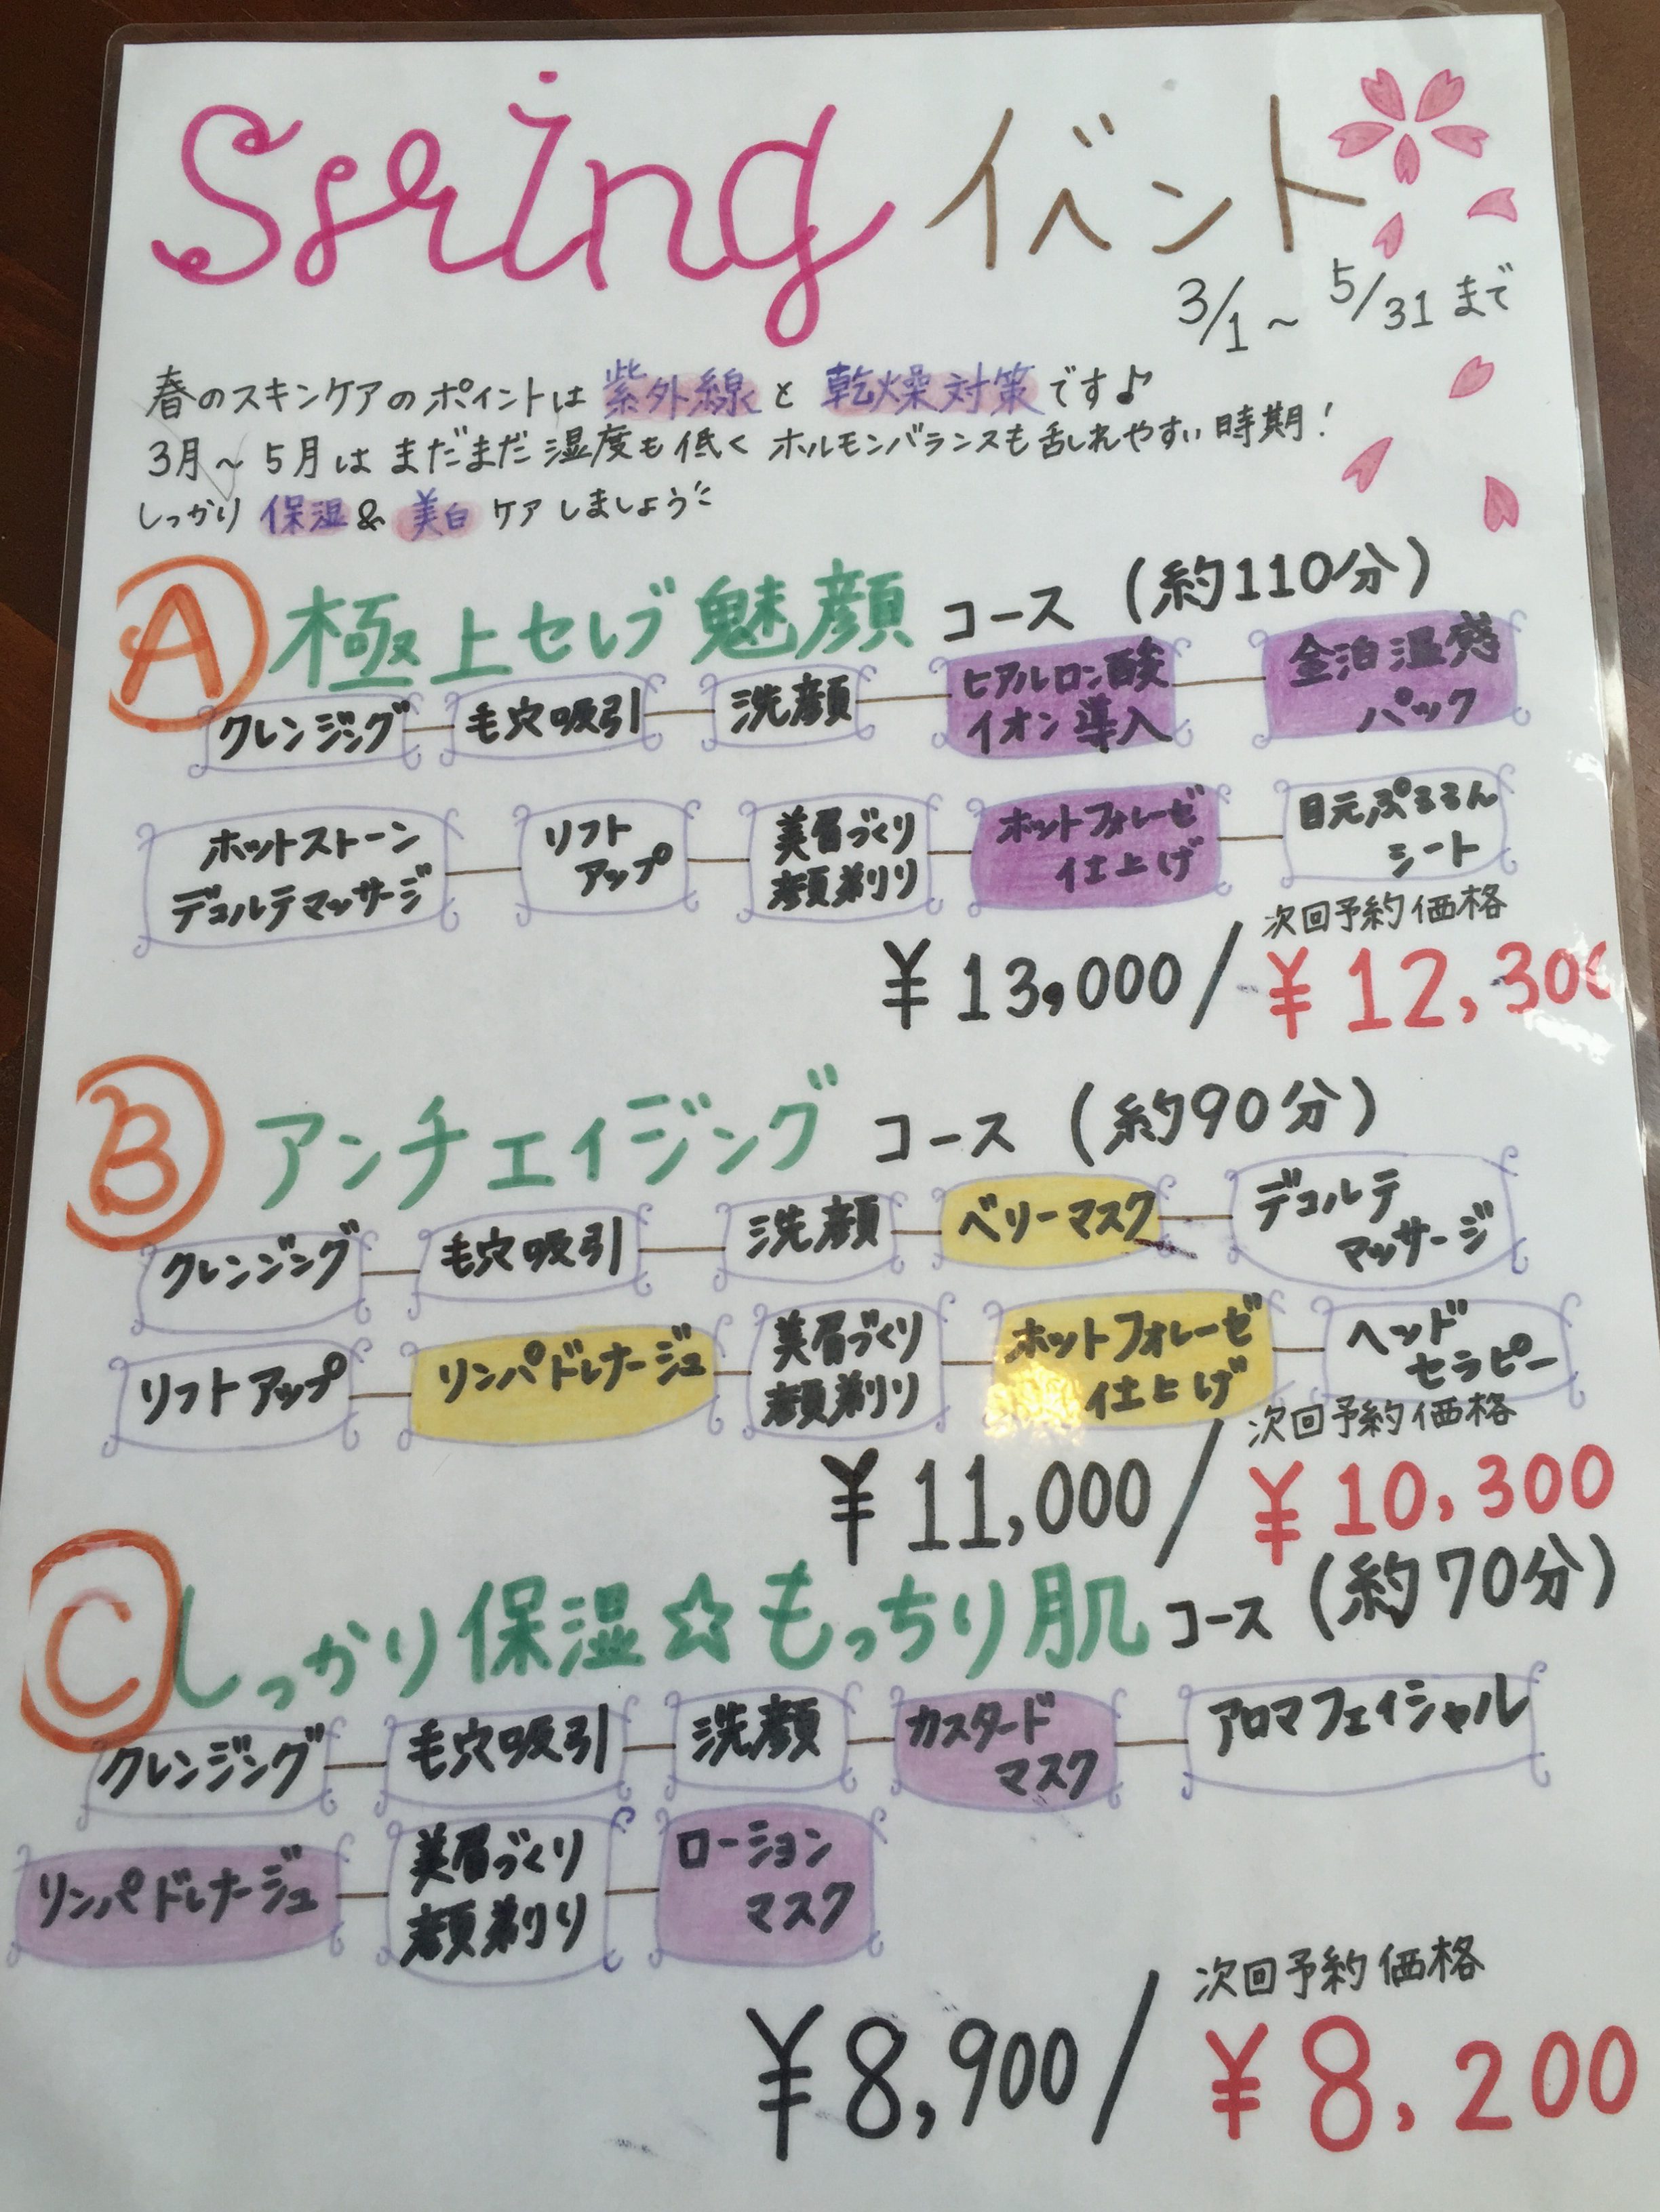 Spring イベント
3/1～5/31まで
春のスキンケアのポイントは紫外線と乾燥対策です♪
3月～5月はまだまだ湿度も低くホルモンバランスも乱れやすい時期！
しっかり保湿&美白ケアしましょう
A 極上セレブ魅顔コース（約110分）
クレンジング 毛穴吸引 洗顔 ヒアルロン酸イオン導入 金泊温感パック
ホットストーンデコルテマッサージ リフトアップ 美眉づくり顔剃り ホットフォレーゼ仕上げ 目元ぷるるんシート
次回予約価格
¥13,000/¥12,300
B アンチエイジングコース（約90分）
クレンジング 毛穴吸引 洗顔 ベリーマスク デコルテマッサージ
リフトアップ リンパドレナージュ 美眉づくり顔剃り ホットフォレーゼ仕上げ ヘッドセラピー
次回予約価格
¥11,000/¥10,300
C しっかり保湿☆もっちり肌コース（約70分）
クレンジング 毛穴吸引 洗顔 カスタードマスク アロマフェイシャル
リンパドレナージュ 美眉づくり顔剃り ローションマスク
次回予約価格
¥8,900/¥8,200